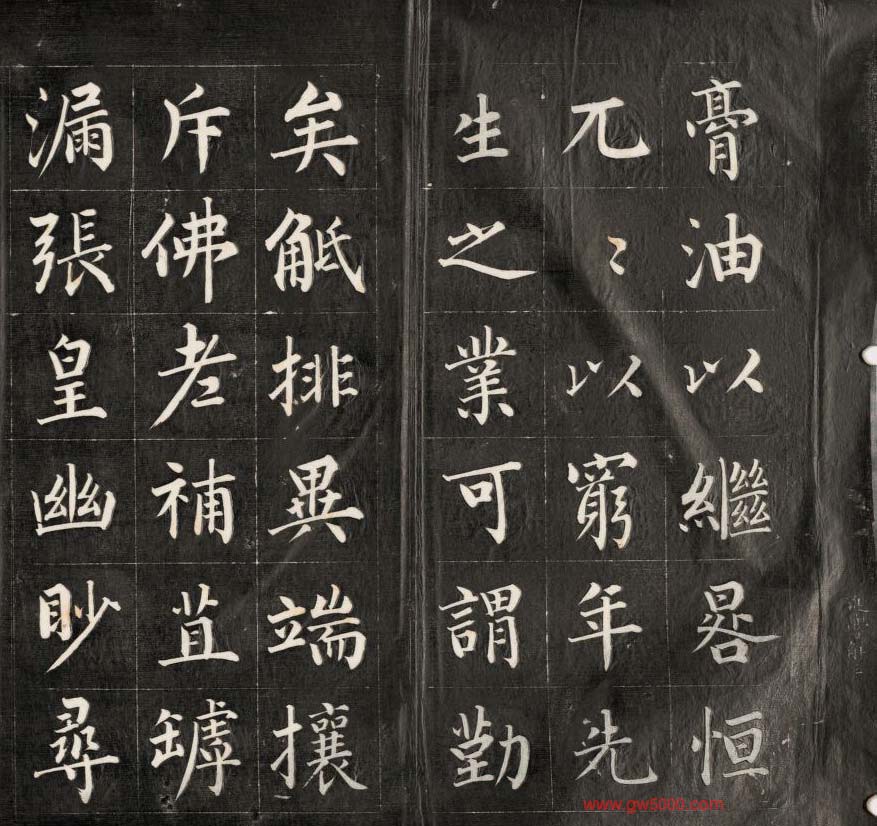 膏油以繼晷恒
兀〻以窮年先
生之業可謂勤
矣觝排異端攘
斥佛老補苴罅
漏張皇幽眇尋
www.gw5000.com